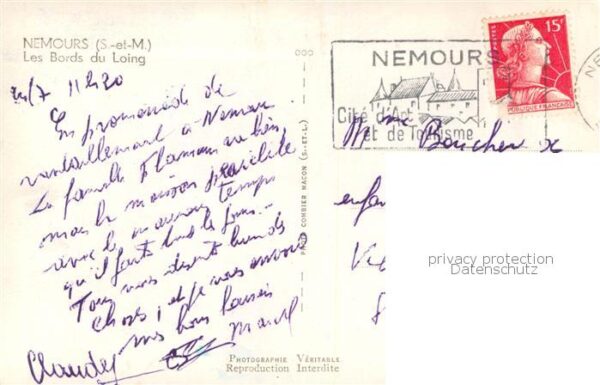 NEMOURS (S.-et-M.)
Les Bords du Loing
24/7 11h20
En promenade de
ravitaillement à Nemours
La famille va bien
mais la maison
avec le mauvais temps
qu'il fait tous les jours...
Tous vous disent
choses, et je vous envoie
mes bons baisers
Claude Marcel
PHOT. COMBIER MACON (S.-ET-L.)
PHOTOGRAPHIE VÉRITABLE
Reproduction Interdite
NEMOURS
Cité d'Art
et de Tourisme
15F
RÉPUBLIQUE FRANÇAISE
NE
Mme Boucher &
enfa
privacy protection
Datenschutz